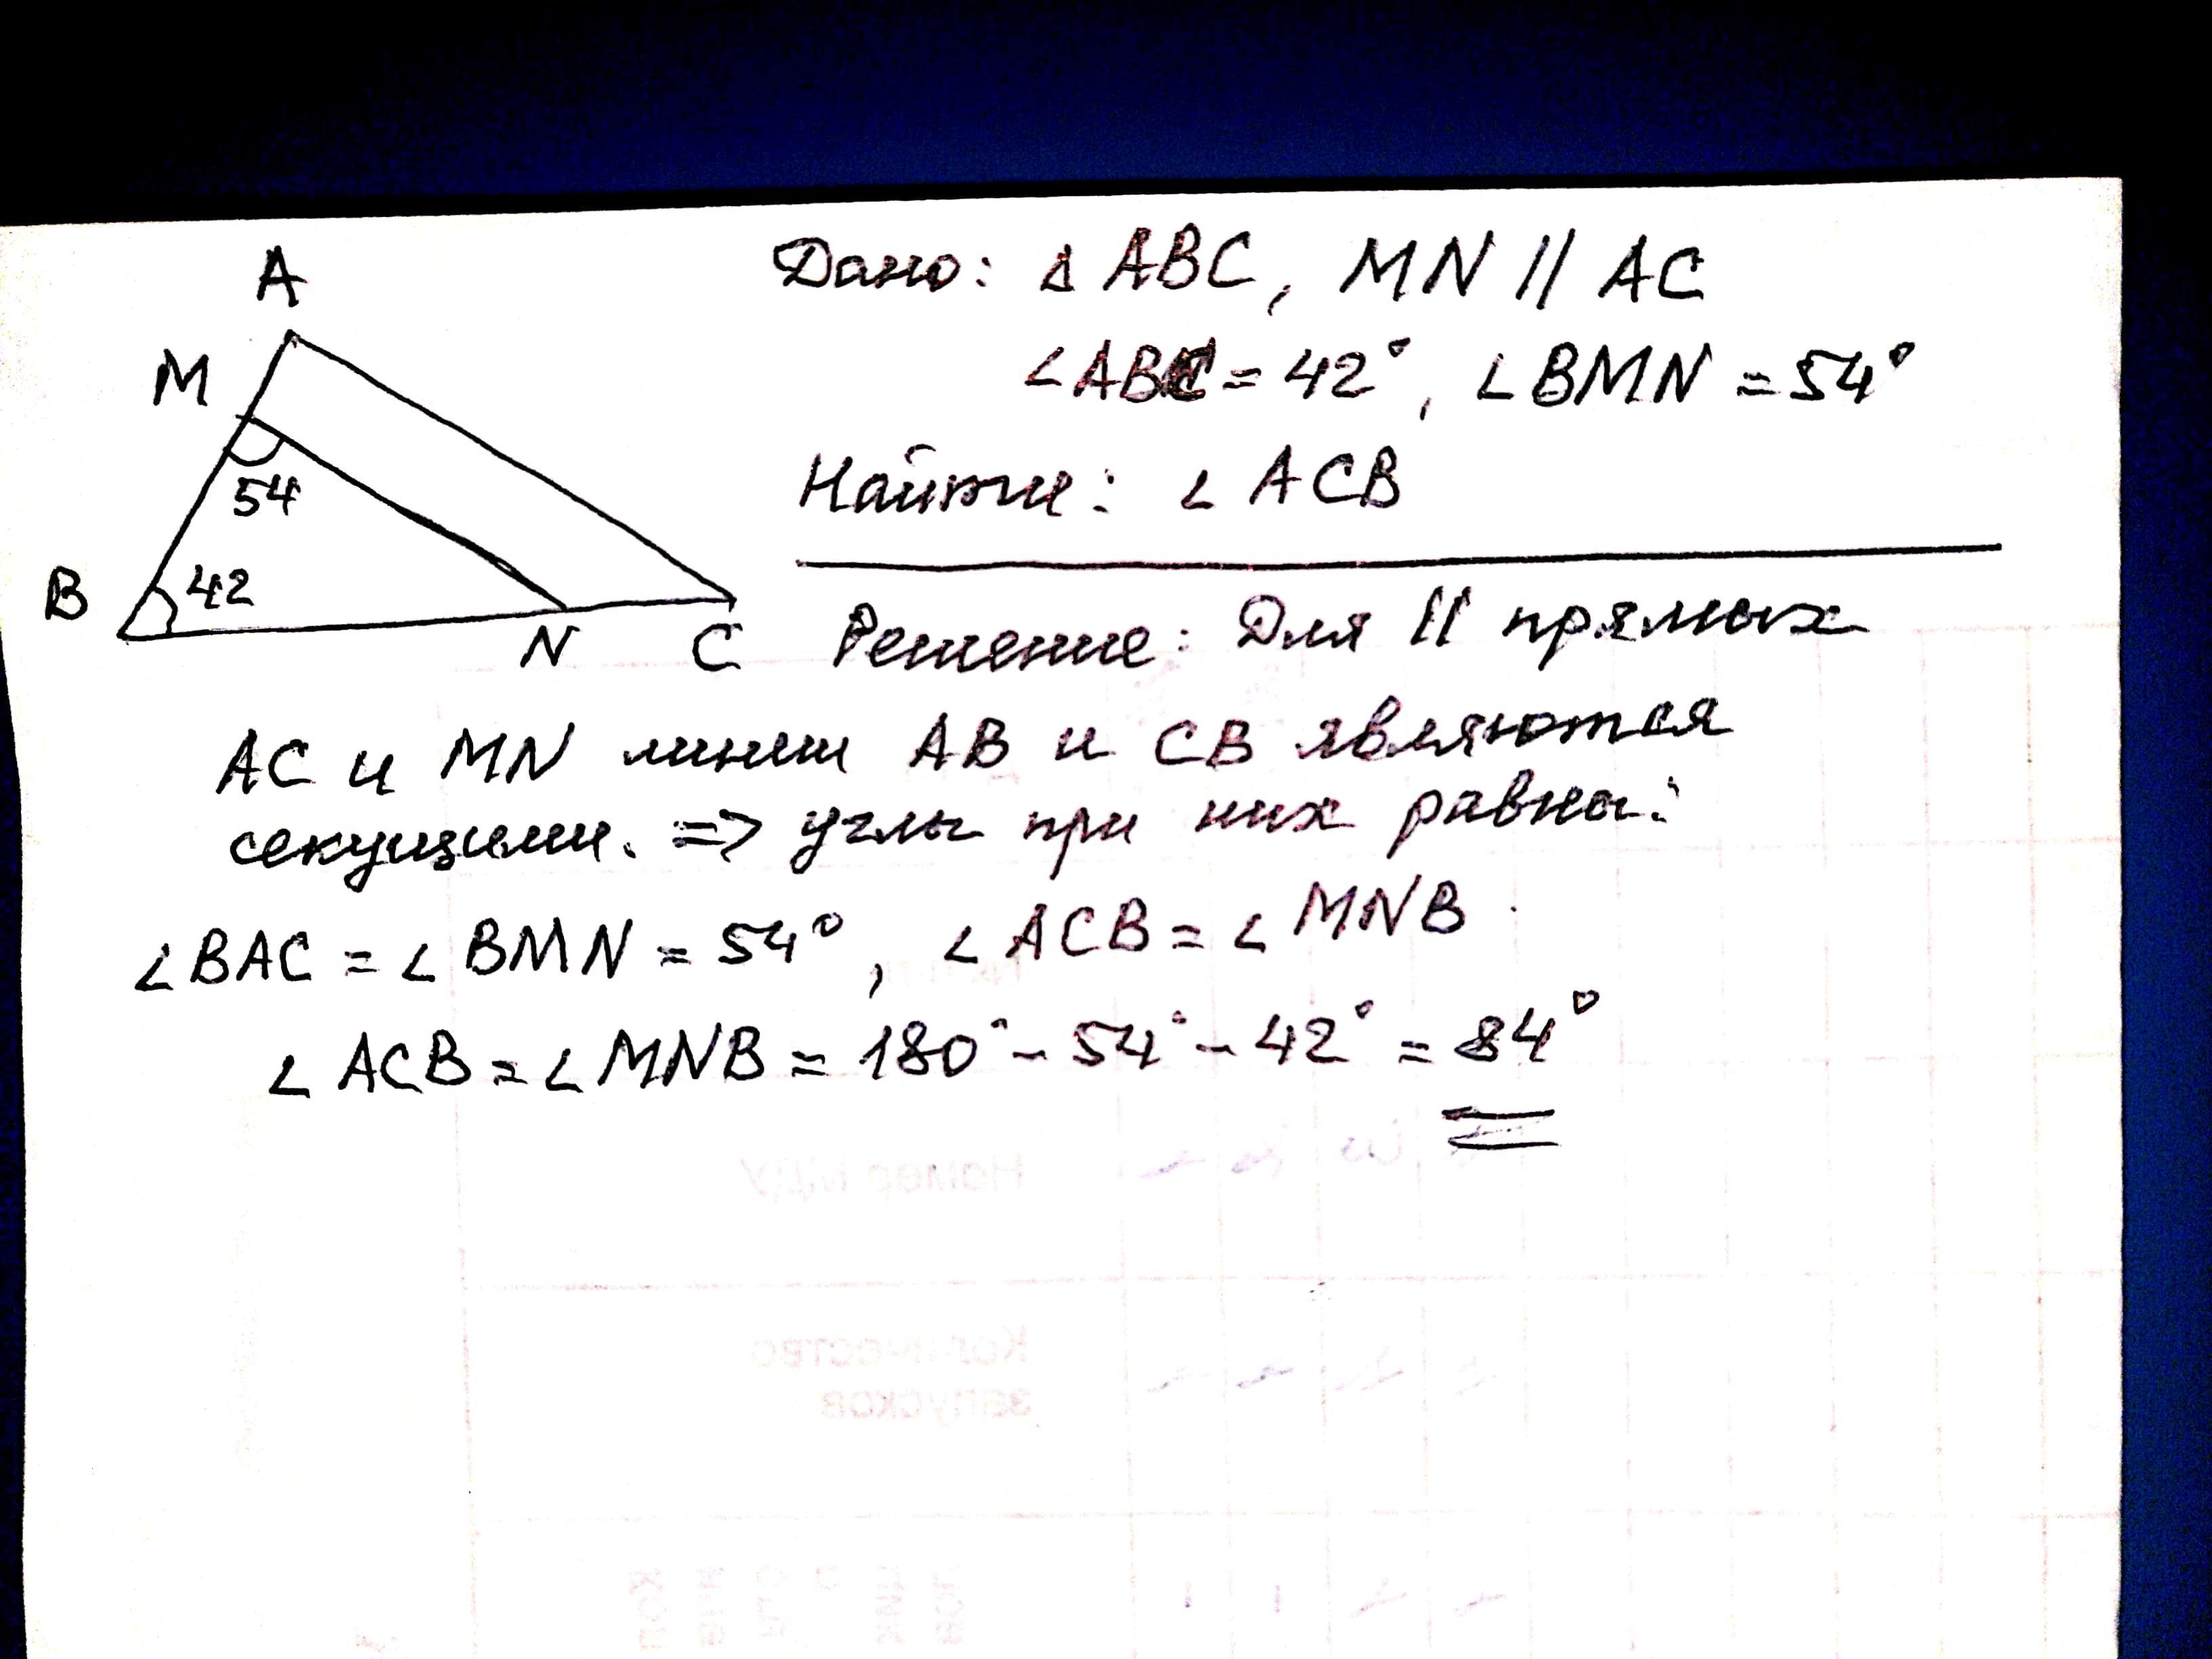 A
M
54
B
42
N
C
Дано: Δ ABC, MN || AC
∠ABC = 42°, ∠BMN = 54°
Найти: ∠ ACB
Решение: Для || прямых
AC и MN линии AB и CB являются
секущими. => углы при них равны:
∠BAC = ∠BMN = 54°, ∠ACB = ∠MNB
∠ACB = ∠MNB = 180° - 54° - 42° = 84°
Номер МДУ
Количество
запусков